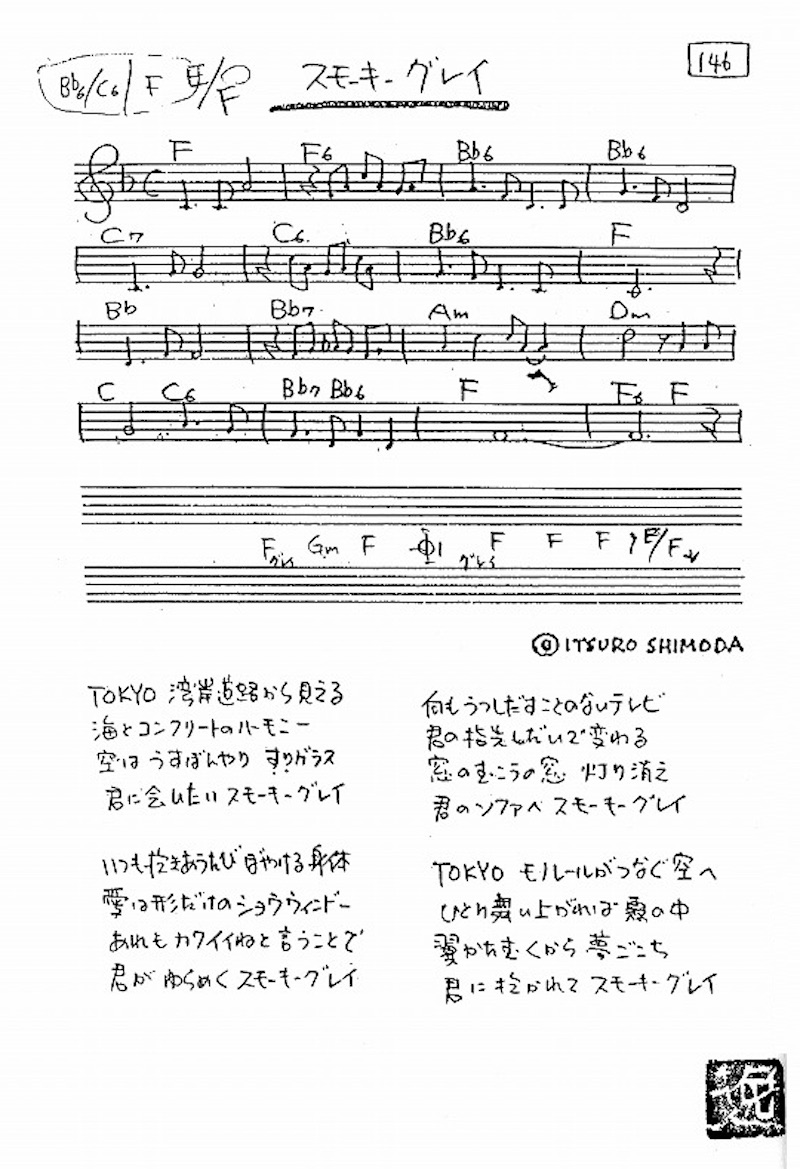 Bb6/C6 F F
スモーキーグレイ
146
F F6 Bb6 Bb6
C7 C6 Bb6 F
Bb Bb7 Am Dm
C C6 Bb7 Bb6 F F6 F
F グレイ Gm F グレイ F F F E/F
© ITSURO SHIMODA
TOKYO 湾岸道路から見える
海とコンクリートのハーモニー
空は うすぼんやり すりガラス
君に会いたい スモーキーグレイ
いつも抱きあうたび ぼやける身体
愛は形だけの ショウウィンドー
あれも カワイイねと 言うことで
君が ゆらめく スモーキーグレイ
何もうつしだすことのないテレビ
君の指先しだいで変わる
窓のむこうの窓 灯り消え
君のソファへ スモーキーグレイ
TOKYO モノレールがつなぐ空へ
ひとり舞い上がれば 雲の中
翼かたむくから 夢ごこち
君に抱かれて スモーキーグレイ